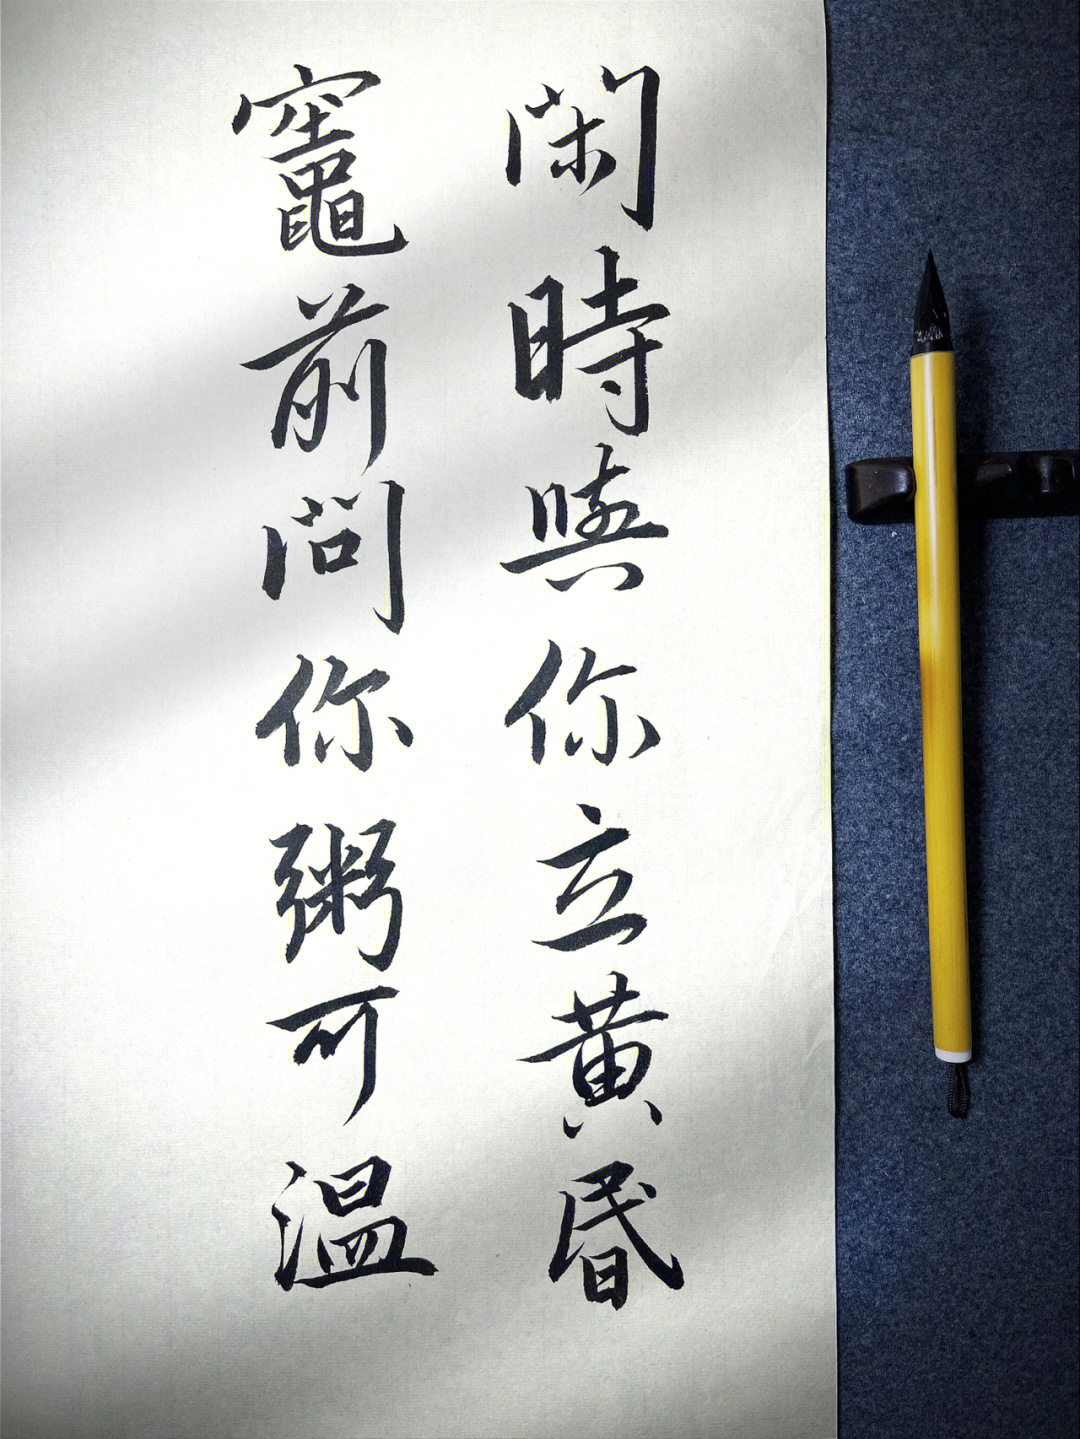 閑時與你立黄昏
竈前問你粥可温